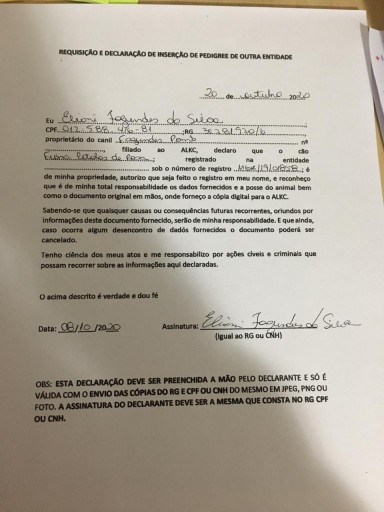 REQUISIÇÃO E DECLARAÇÃO DE INSERÇÃO DE PEDIGREE DE OUTRA ENTIDADE
20 de outubro 2020
Eu Elioni Fagundes da Silva
CPF ;RG
proprietário do canil Fagundes nº
filiado ao ALKC, declaro que o cão
registrado na entidade
sob o número de registro ; é
de minha propriedade, autorizo que seja feito o registro em meu nome, e reconheço
que é de minha total responsabilidade os dados fornecidos e a posse do animal bem
como o documento original em mãos, onde forneço a cópia digital para o ALKC.
Sabendo-se que quaisquer causas ou consequências futuras recorrentes, oriundos por
informações deste documento fornecido, serão de minha responsabilidade. E que ainda,
caso ocorra algum desencontro de dados fornecidos o documento poderá ser
cancelado.
Tenho ciência dos meus atos e me responsabilizo por ações cíveis e criminais que
possam recorrer sobre as informações aqui declaradas.
O acima descrito é verdade e dou fé
Data: 08/10/2020 Assinatura: Elioni Fagundes da Silva
(Igual ao RG ou CNH)
OBS: ESTA DECLARAÇÃO DEVE SER PREENCHIDA A MÃO PELO DECLARANTE E SÓ É
VÁLIDA COM O ENVIO DAS CÓPIAS DO RG E CPF OU CNH DO MESMO EM JPEG, PNG OU
FOTO. A ASSINATURA DO DECLARANTE DEVE SER A MESMA QUE CONSTA NO RG CPF
OU CNH.